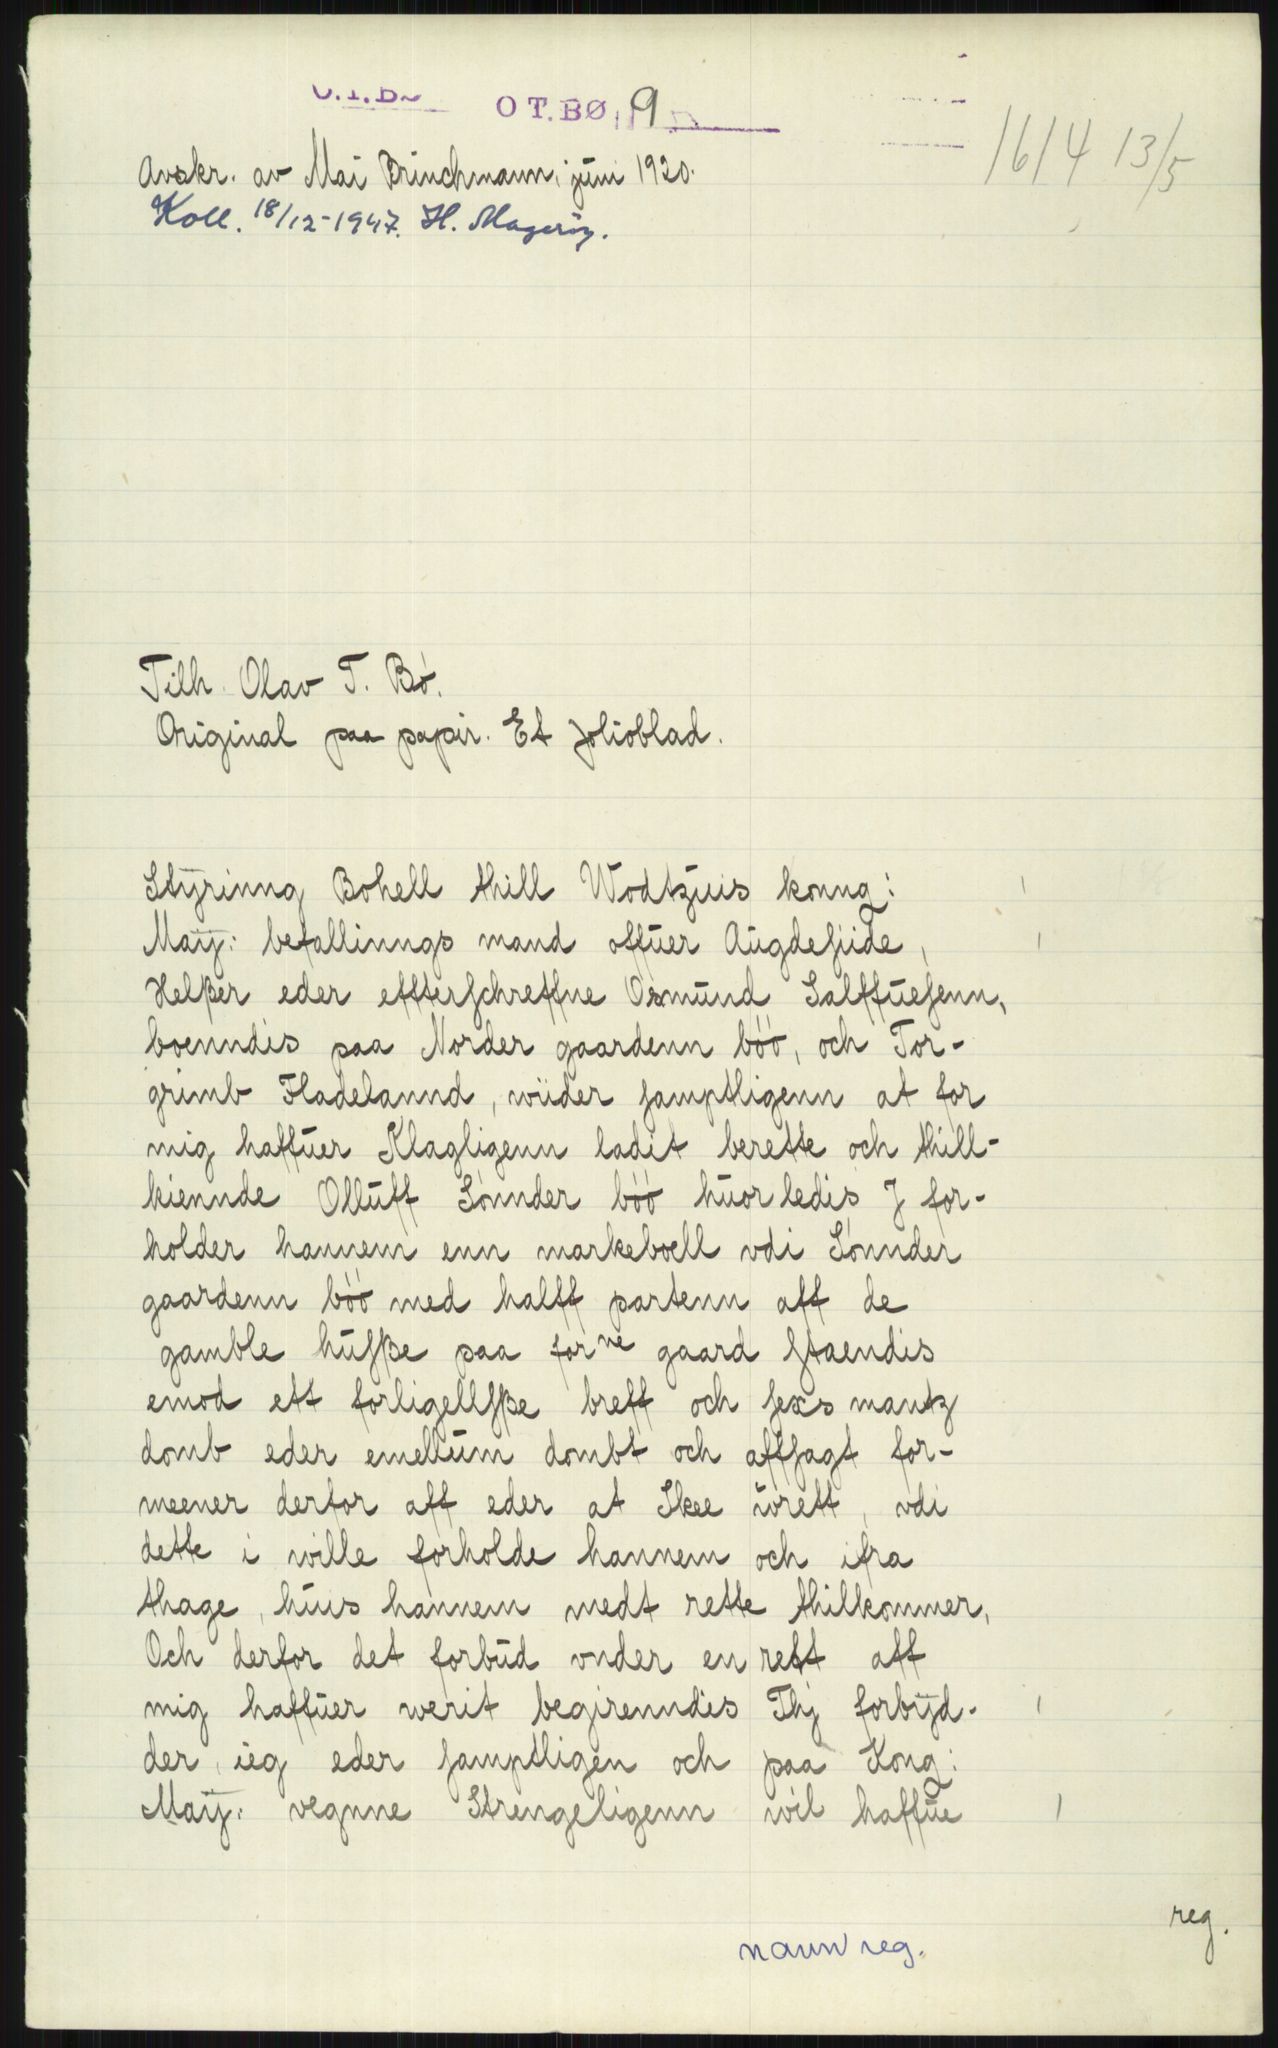 O T. BØ 9
1614 13/5
Avskr. av Mai Brinchmann, juni 1920.
Koll. 18/12-1947. H. Magerøy.
Tilh. Olav T. Bø.
Original paa papir. Et folioblad.
Styrinng Bohell thill Wodtzuis konng:
Maÿ: befallinngs mand offuer Augdesiide,
Helßer eder effterschreffne Osmund Salffuesenn,
boenndis paa Norder gaardenn böö, och Tor-
grimb Fladelannd, wiider samptligenn at for
mig haffuer Klagligenn ladit berette och thill-
kiennde Olluff Sønnder böö huorledis J for-
holder hannem enn markeboell vdi Sønnder
gaardenn böö med halff partenn aff de
gamble husße paa forne gaard staendis
emod ett forligellsße breff och sexs mantz
domb eder emellum dombt och affsagt for-
meener derfor aff eder at Skee wrett, vdi
dette i wille forholde hannem och ifra
thage, huis hannem medt rette thilkommer,
Och derfor det forbud vnder en rett aff
mig haffuer werit begirenndis Thj forbÿd-
der ieg eder samptligen och paa Kong:
Maÿ: vegnne Strengeligenn wil haffue
reg.
navnreg.